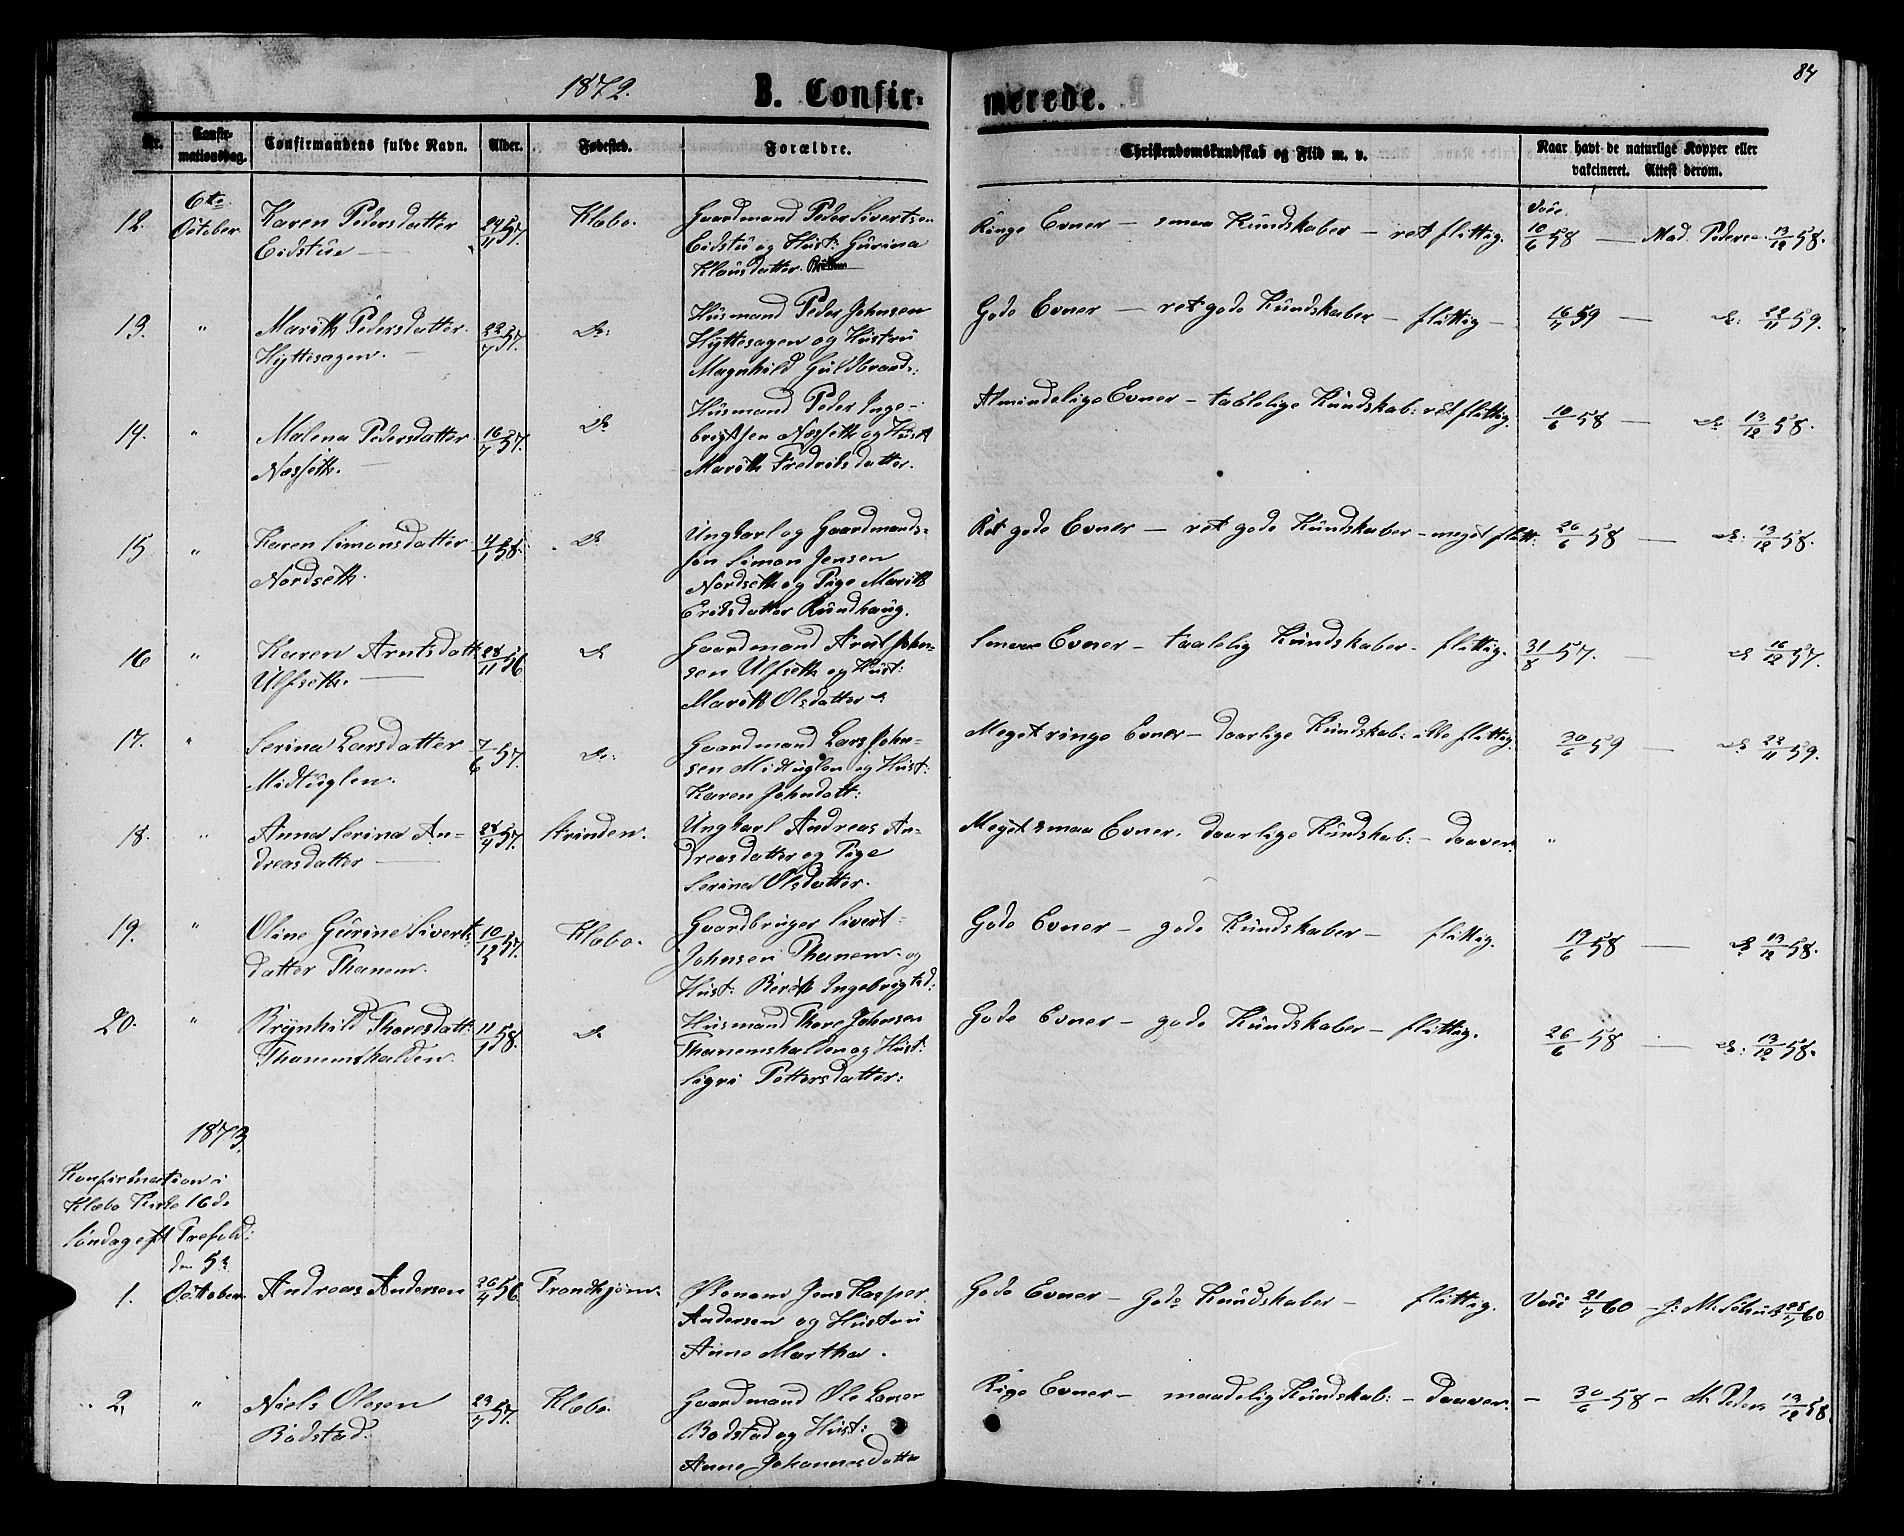 84
1872. B. Confir- merede.
Nr. Confirmationsdag. Confirmandens fulde Navn. Alder. Fødested. Forældre. Christendomskundskab og Flid m. v. Naar havt de naturlige Kopper eller vakcineret. Attest derom.
12. 6te October Karen Pedersdatter 24/11 57. Klæbo. Gaardmand Peder Sivertsen Ringe Evner — smaa Kundskaber — ret flittig. Vacc. 10/6 58 — Mad. Peders. 13/12 58.
Eidstue — Eidstu og Hust: Gurina
Klausdatter.
13. " Marith Pedersdatter 22/7 57. Do: Husmand Peder Johnsen Gode Evner — ret gode Kundskaber — flittig — 16/7 59 — Do: 22/11 59.
Hyttesagen. — Hyttesagen og Hustru
Magnhild Guldbrands:
14. " Malena Pedersdatter 16/7 57. Do Husmand Peder Inge- Almindelige Evner — taalelige Kundskab: ret flittig. 10/6 58 — Do 13/12 58.
Næsseth. — brigtsen Næsseth og Hust
Marith Fredriksdatter.
15 " Karen Simonsdatter 4/1 58. Do Ungkarl og Gaardmands- Ret gode Evner — ret gode Kundskaber — meget flitt: 26/6 58 — Do: 13/12 58.
Nordseth. søn Simon Jensen
Nordseth og Pige Marith
Eriksdatter Rundhaug.
16 " Karen Arntsdatt 28/11 56 Do Gaardmand Arnt John- Smaa Evner — taalelig Kundskaber — flittig. 31/8 57. — Do 16/12 57.
Ulfseth. — sen Ulfseth og Hust:
Marith Olsdatter
17. " Serina Larsdatter 7/6 57. Do: Gaardmand Lars John- Meget ringe Evner — daarlige Kundskab: ikke flittig. 30/6 59 — Do 22/11 59.
Midtuglen. sen Midtuglen og Hust:
Karen Johndatt:
18. " Anna Serina An- 28/4 57. Strinden. Ungkarl Andreas An- Meget smaa Evner. daarlige Kundskab: — doven. "
dreasdatter — dreasdatter og Pige
Serina Olsdatter.
19. " Oline Gurine Sivert- 10/12 57. Klæbo. Gaardbruger Sivert Gode Evner — gode Kundskaber — flittig. 19/6 58 — Do 13/12 58.
datter Thanem. Johnsen Thanem og
Hust: Berith Ingebrigtsd:
20. " Brynhild Thoresdatt: 11/1 58. Do Husmand Thore Johnsen Gode Evner — gode Kundskaber — flittig. 26/6 58 — Do: 13/12 58.
Thanemshalden. Thanemshalden og Hust:
Sigri Pettersdatter:
1873.
Konfirmation i
Klæbo Kirke 16de
Søndag eft Trefold:
den 5te
1. October Andreas Andersen 26/4 56 Trondhjem. Jens Kasper Gode Evner — gode Kundskaber — flittig. Vacc 21/7 60 — 28/7 60
Andersen og Hustru
Anne Martha.
2. " Niels Olesen 23/7 57. Klæbo. Gaardmand Ole Larsen Rige Evner — maadelig Kundskab: — doven. — 30/6 58 — M. Peders 13/12 58.
Bodstad. Bodstad og Hust:
Anne Johannesdatter